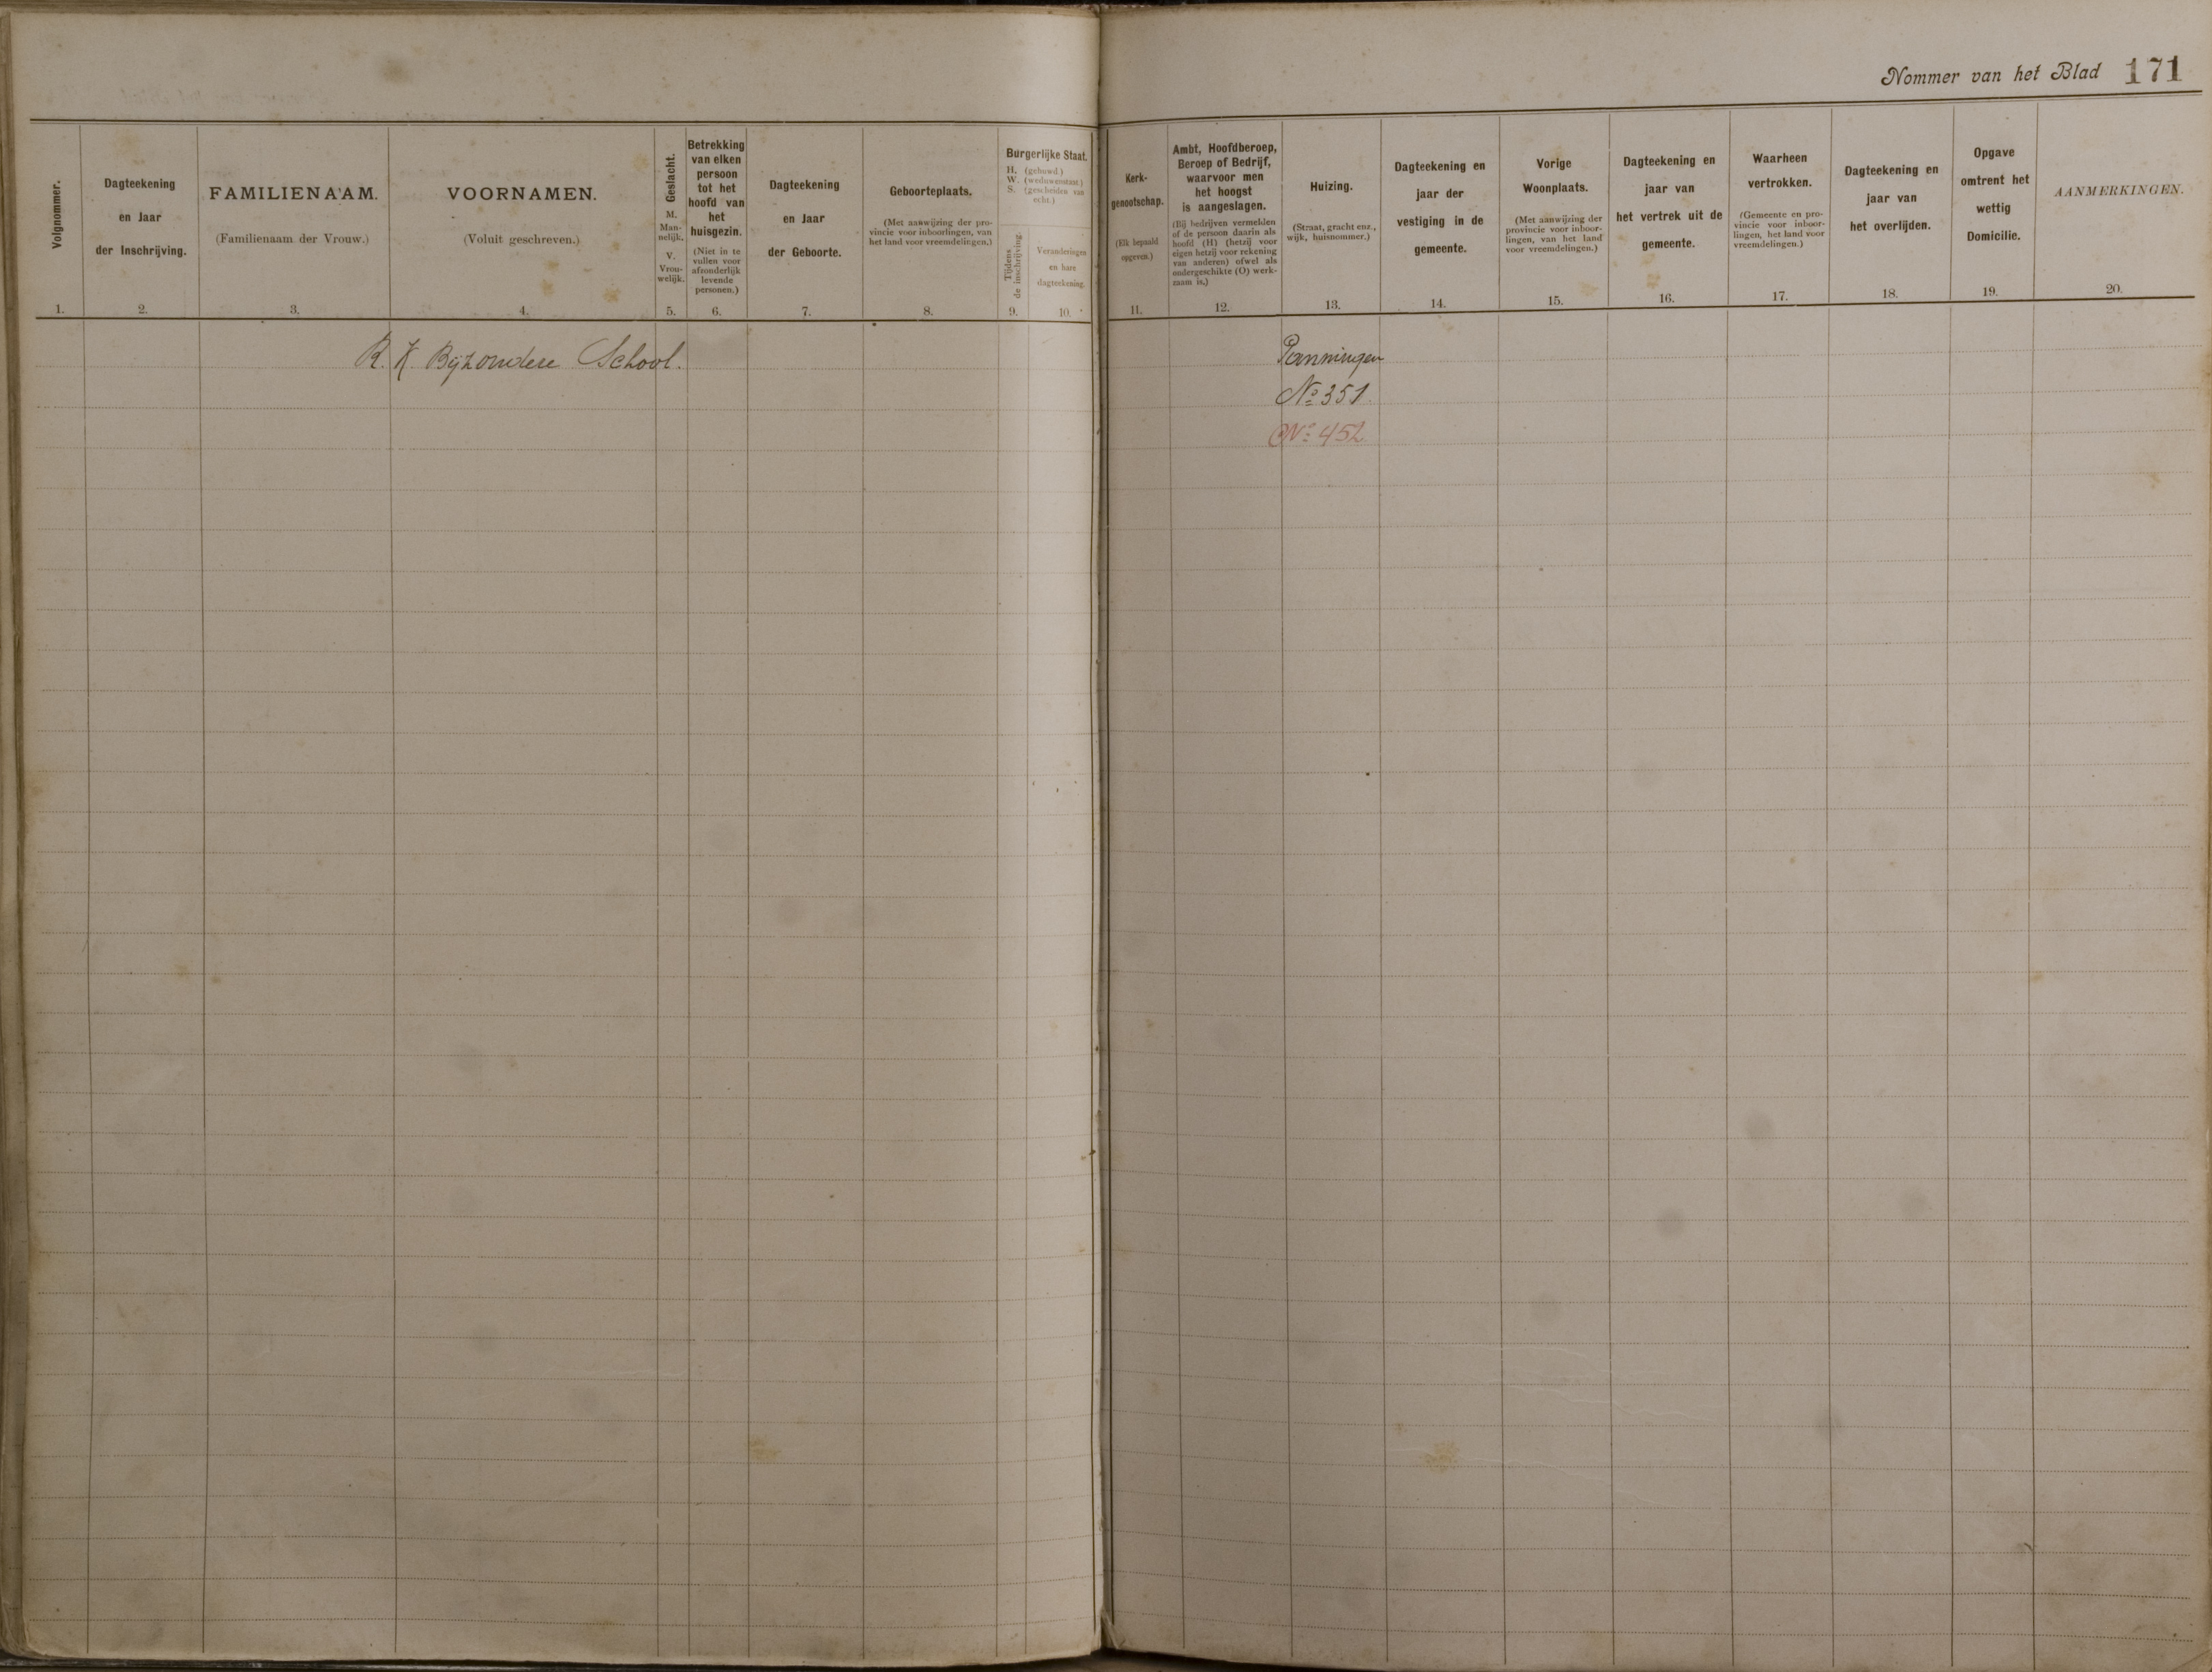 Nommer van het Blad 171
Volgnommer.
1.
Dagteekening
en Jaar
der Inschrijving.
2.
FAMILIENAAM.
(Familienaam der Vrouw.)
3.
VOORNAMEN.
(Voluit geschreven.)
4.
Geslacht.
M.
Man-
nelijk.
V.
Vrou-
welijk.
5.
Betrekking
van elken
persoon
tot het
hoofd van
het
huisgezin.
(Niet in te
vullen voor
afzonderlijk
levende
personen.)
6.
Dagteekening
en Jaar
der Geboorte.
7.
Geboorteplaats.
(Met aanwijzing der pro-
vincie voor inboorlingen, van
het land voor vreemdelingen.)
8.
Burgerlijke Staat.
H. (gehuwd.)
W. (weduwenstaat.)
S. (gescheiden van
echt.)
Tijdens
de inschrijving.
9.
Veranderingen
en hare
dagteekening.
10.
Kerk-
genootschap.
(Elk bepaald
opgeven.)
11.
Ambt, Hoofdberoep,
Beroep of Bedrijf,
waarvoor men
het hoogst
is aangeslagen.
(Bij bedrijven vermelden
of de persoon daarin als
hoofd (H) (hetzij voor
eigen hetzij voor rekening
van anderen) ofwel als
ondergeschikte (O) werk-
zaam is.)
12.
Huizing.
(Straat, gracht enz.,
wijk, huisnommer.)
13.
Dagteekening en
jaar der
vestiging in de
gemeente.
14.
Vorige
Woonplaats.
(Met aanwijzing der
provincie voor inboor-
lingen, van het land
voor vreemdelingen.)
15.
Dagteekening en
jaar van
het vertrek uit de
gemeente.
16.
Waarheen
vertrokken.
(Gemeente en pro-
vincie voor inboor-
lingen, het land voor
vreemdelingen.)
17.
Dagteekening en
jaar van
het overlijden.
18.
Opgave
omtrent het
wettig
Domicilie.
19.
AANMERKINGEN.
20.
R. K. Bijzondere School.
Panningen
No 351.
No 452